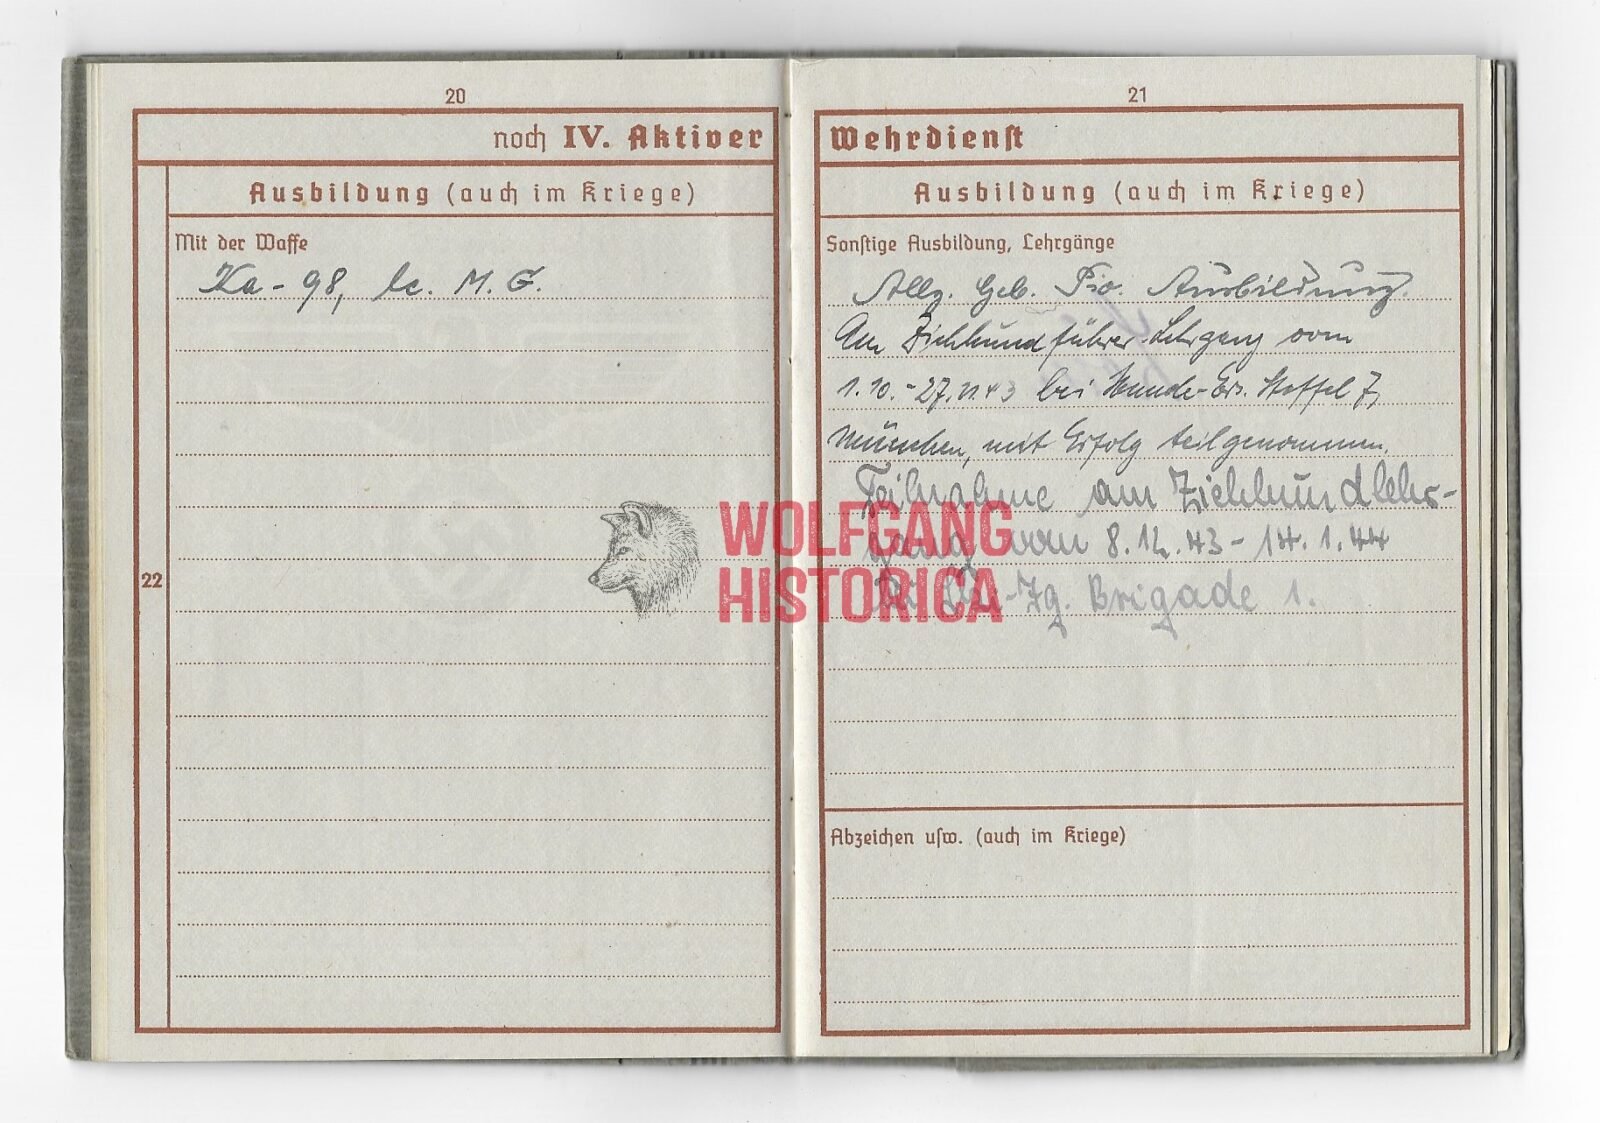 20
noch IV. Aktiver
Ausbildung (auch im Kriege)
Mit der Waffe
Ka-98, lc. M. G.
22
21
Wehrdienst
Ausbildung (auch im Kriege)
Sonstige Ausbildung, Lehrgänge
Allg. Geb. Pio. Ausbildung.
Am Ziehhundführer-Lehrgang vom
1.10.-27.11.43 bei Hunde-Ers. Staffel 7,
München, mit Erfolg teilgenommen.
Teilnahme am Ziehhundlehr-
gang vom 8.12.43-14.1.44
Jg. Brigade 1.
Abzeichen usw. (auch im Kriege)
WOLFGANG
HISTORICA